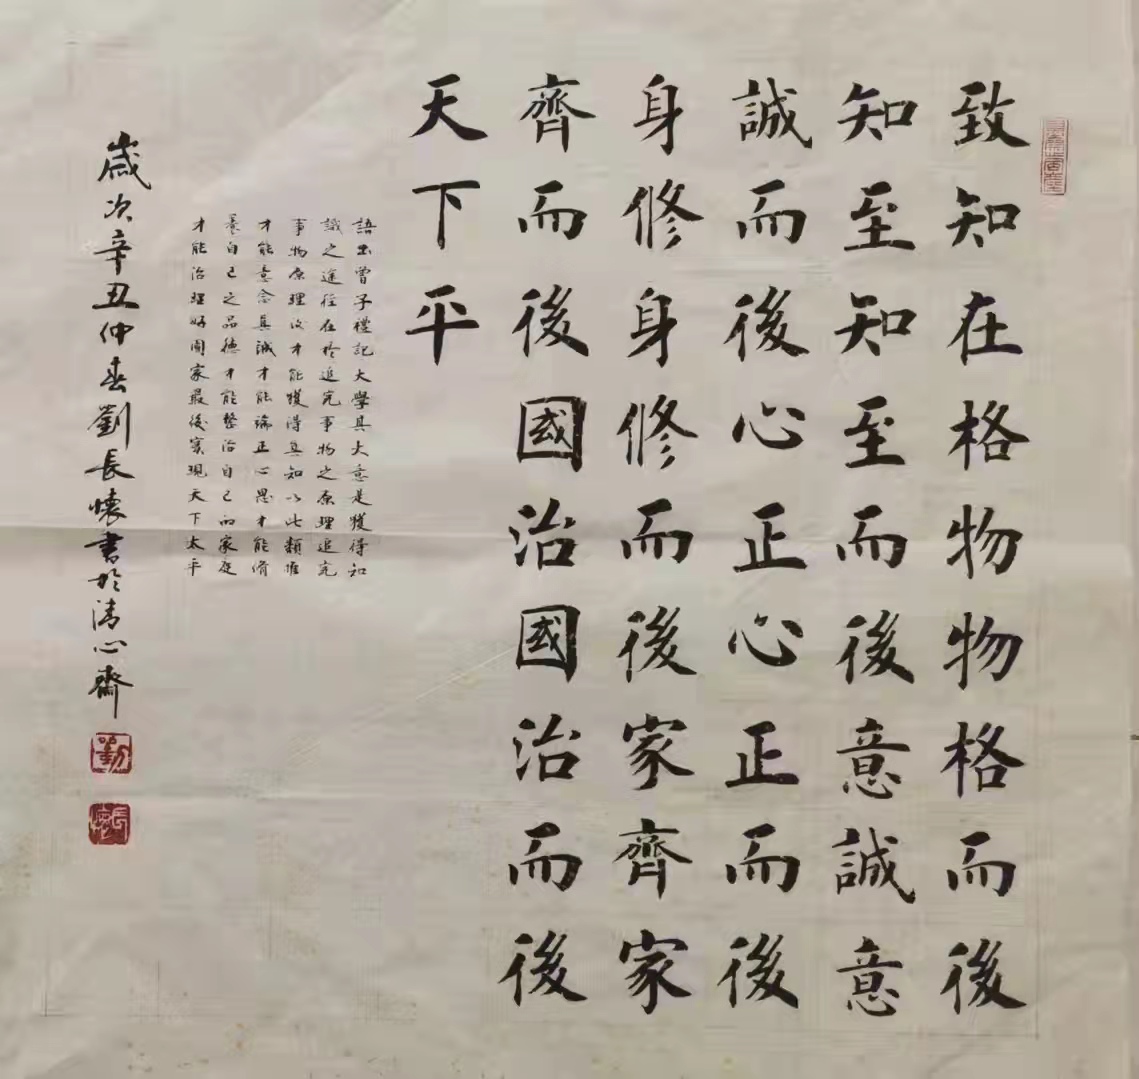 致知在格物物格而後
知至知至而後意誠意
誠而後心正心正而後
身修身修而後家齊家
齊而後國治國治而後
天下平
語出曾子禮記大學其大意是獲得知
識之途徑在於追究事物之原理追究
事物原理後才能獲得真知以此類推
才能意念真誠才能端正心思才能脩
養自己之品德才能整治自己的家庭
才能治理好國家最後實現天下太平
歲次辛丑仲春劉長懷書於清心齋
劉
長懷